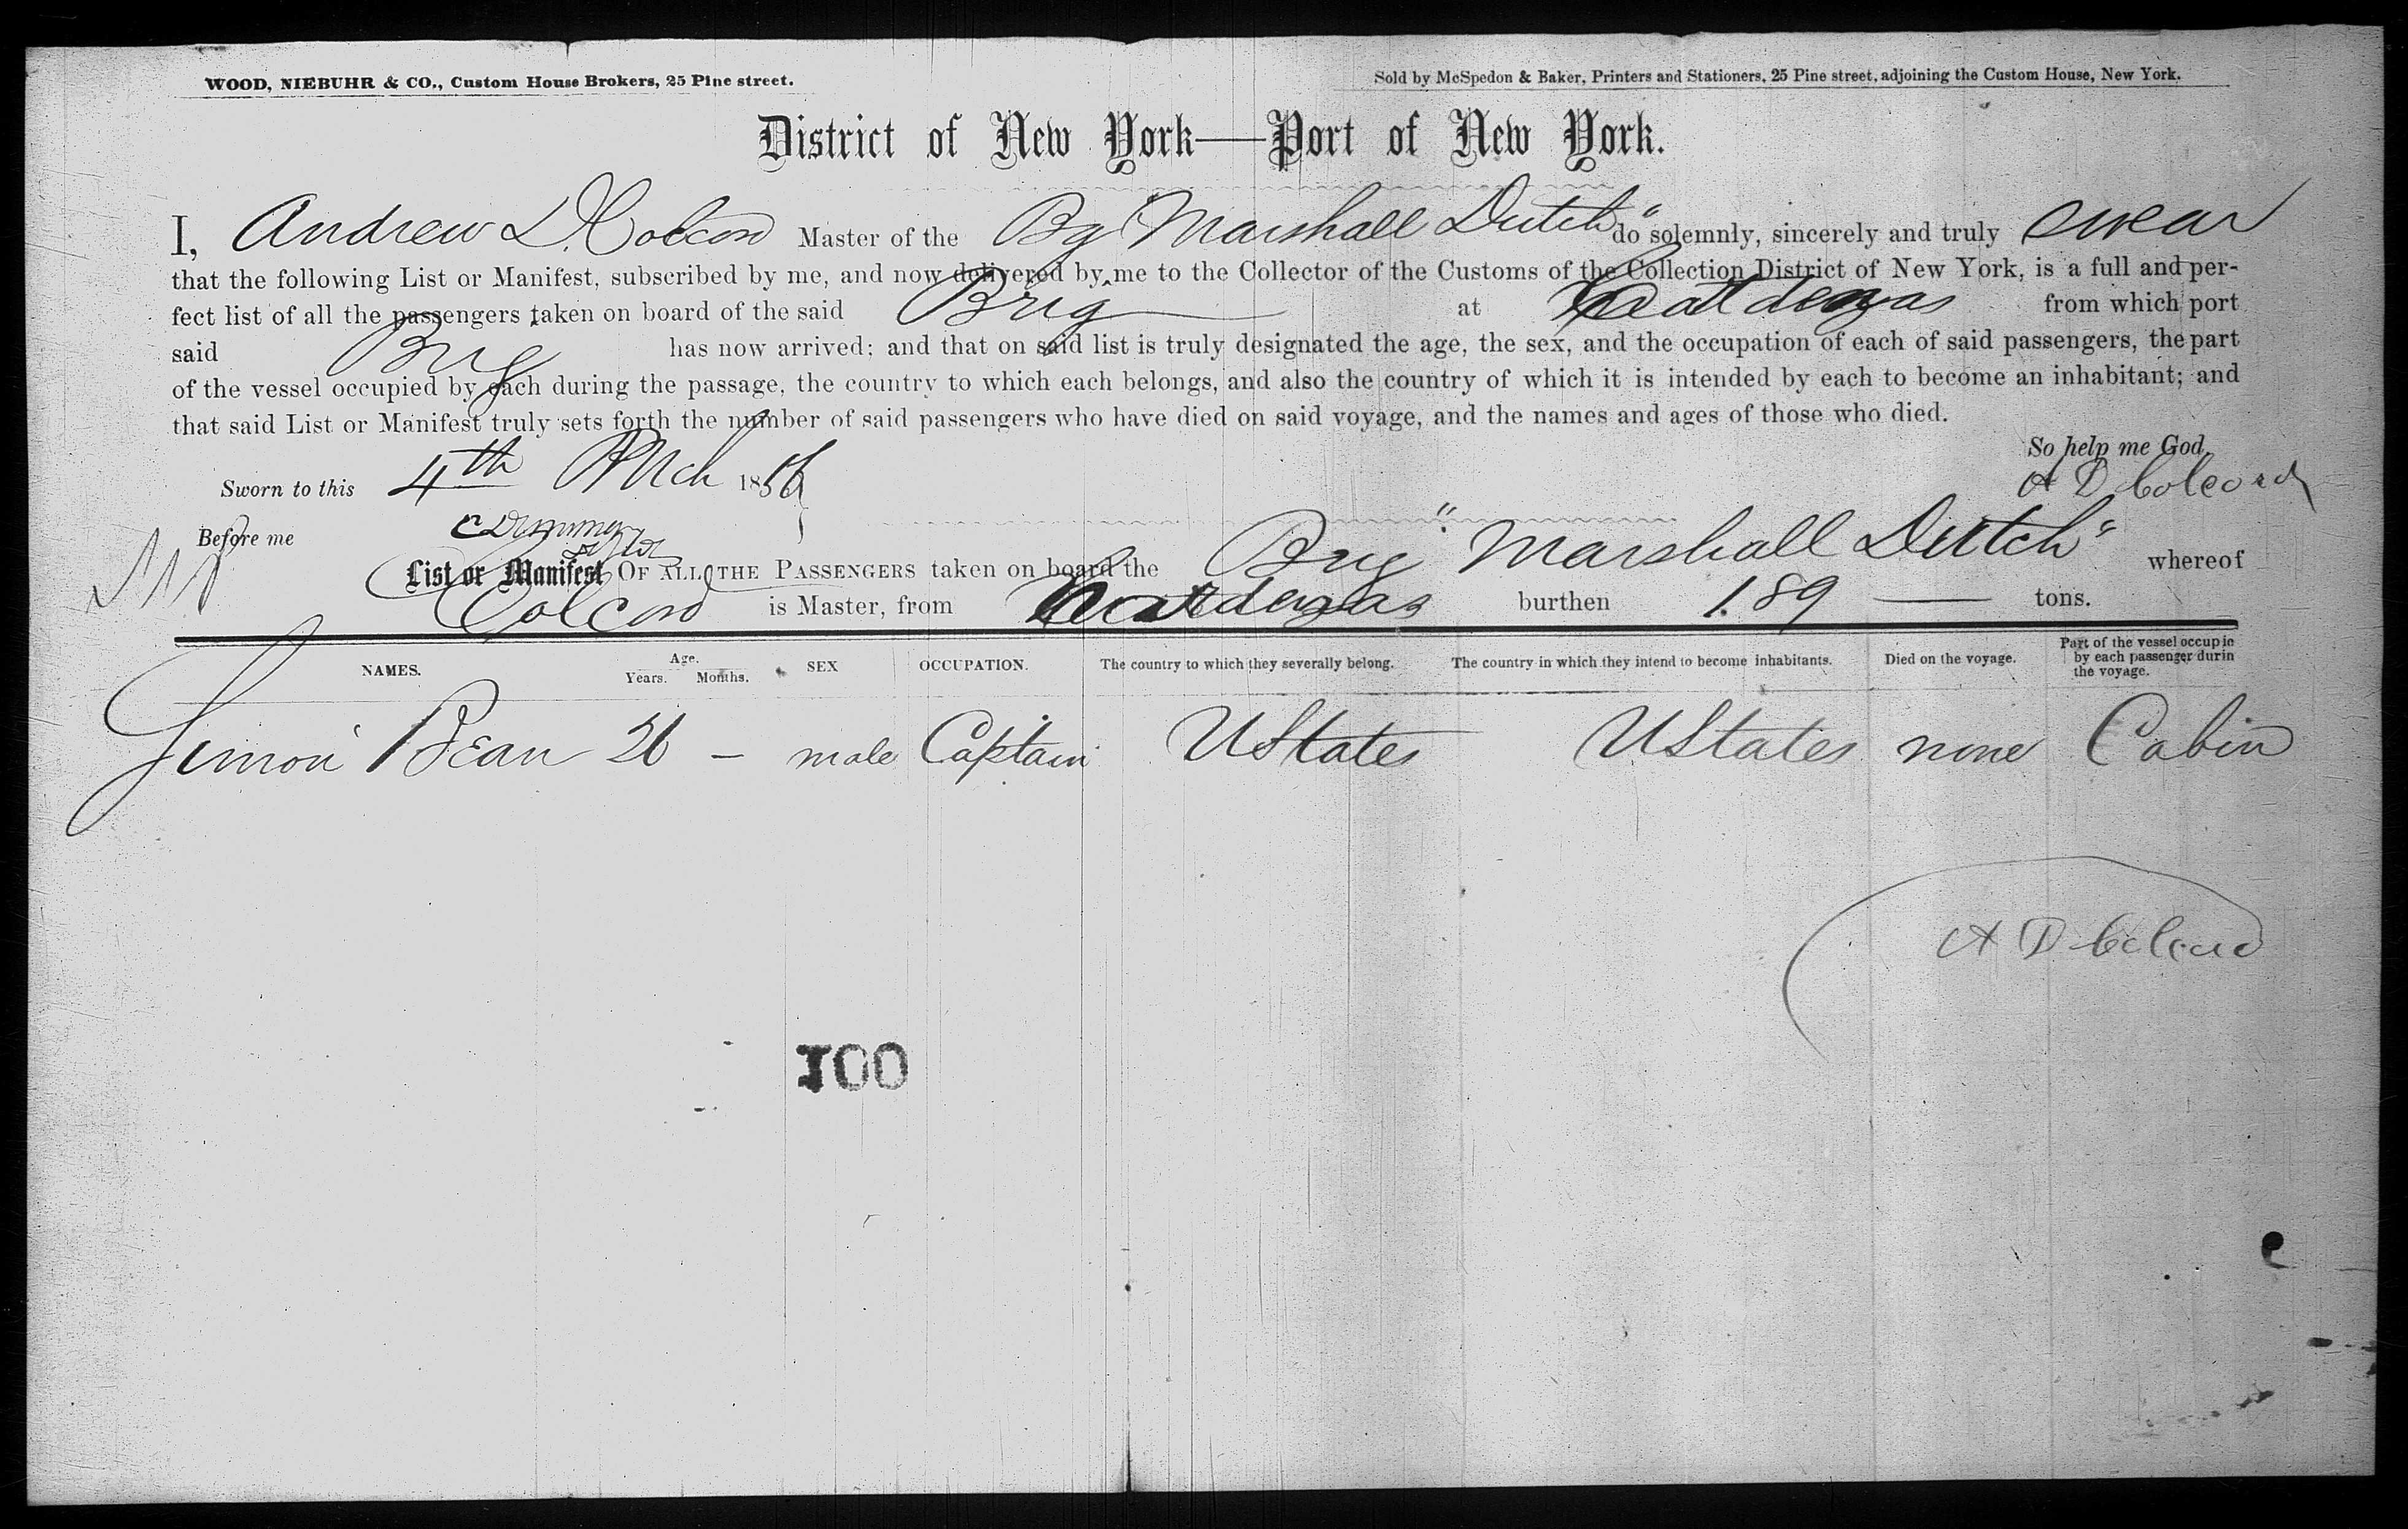 WOOD, NIEBUHR & CO., Custom House Brokers, 25 Pine street.
Sold by McSpedon & Baker, Printers and Stationers, 25 Pine street, adjoining the Custom House, New York.
District of New York—Port of New York.
I, Andrew D. Colcord Master of the Bg "Marshall Dutch" do solemnly, sincerely and truly swear
that the following List or Manifest, subscribed by me, and now delivered by me to the Collector of the Customs of the Collection District of New York, is a full and per-
fect list of all the passengers taken on board of the said Brig at from which port
said Brig has now arrived; and that on said list is truly designated the age, the sex, and the occupation of each of said passengers, the part
of the vessel occupied by each during the passage, the country to which each belongs, and also the country of which it is intended by each to become an inhabitant; and
that said List or Manifest truly sets forth the number of said passengers who have died on said voyage, and the names and ages of those who died.
So help me God.
Sworn to this 4th Mch 1856
A D Colcord
Before me
List or Manifest OF ALL THE PASSENGERS taken on board the Brig "Marshall Dutch" whereof
Colcord is Master, from burthen 189 — tons.
NAMES. Age. Years. Months. SEX OCCUPATION. The country to which they severally belong. The country in which they intend to become inhabitants. Died on the voyage. Part of the vessel occupie by each passenger durin the voyage.
Simon Bean 26 – male Captain UStates UStates none Cabin
A D Colcord
100